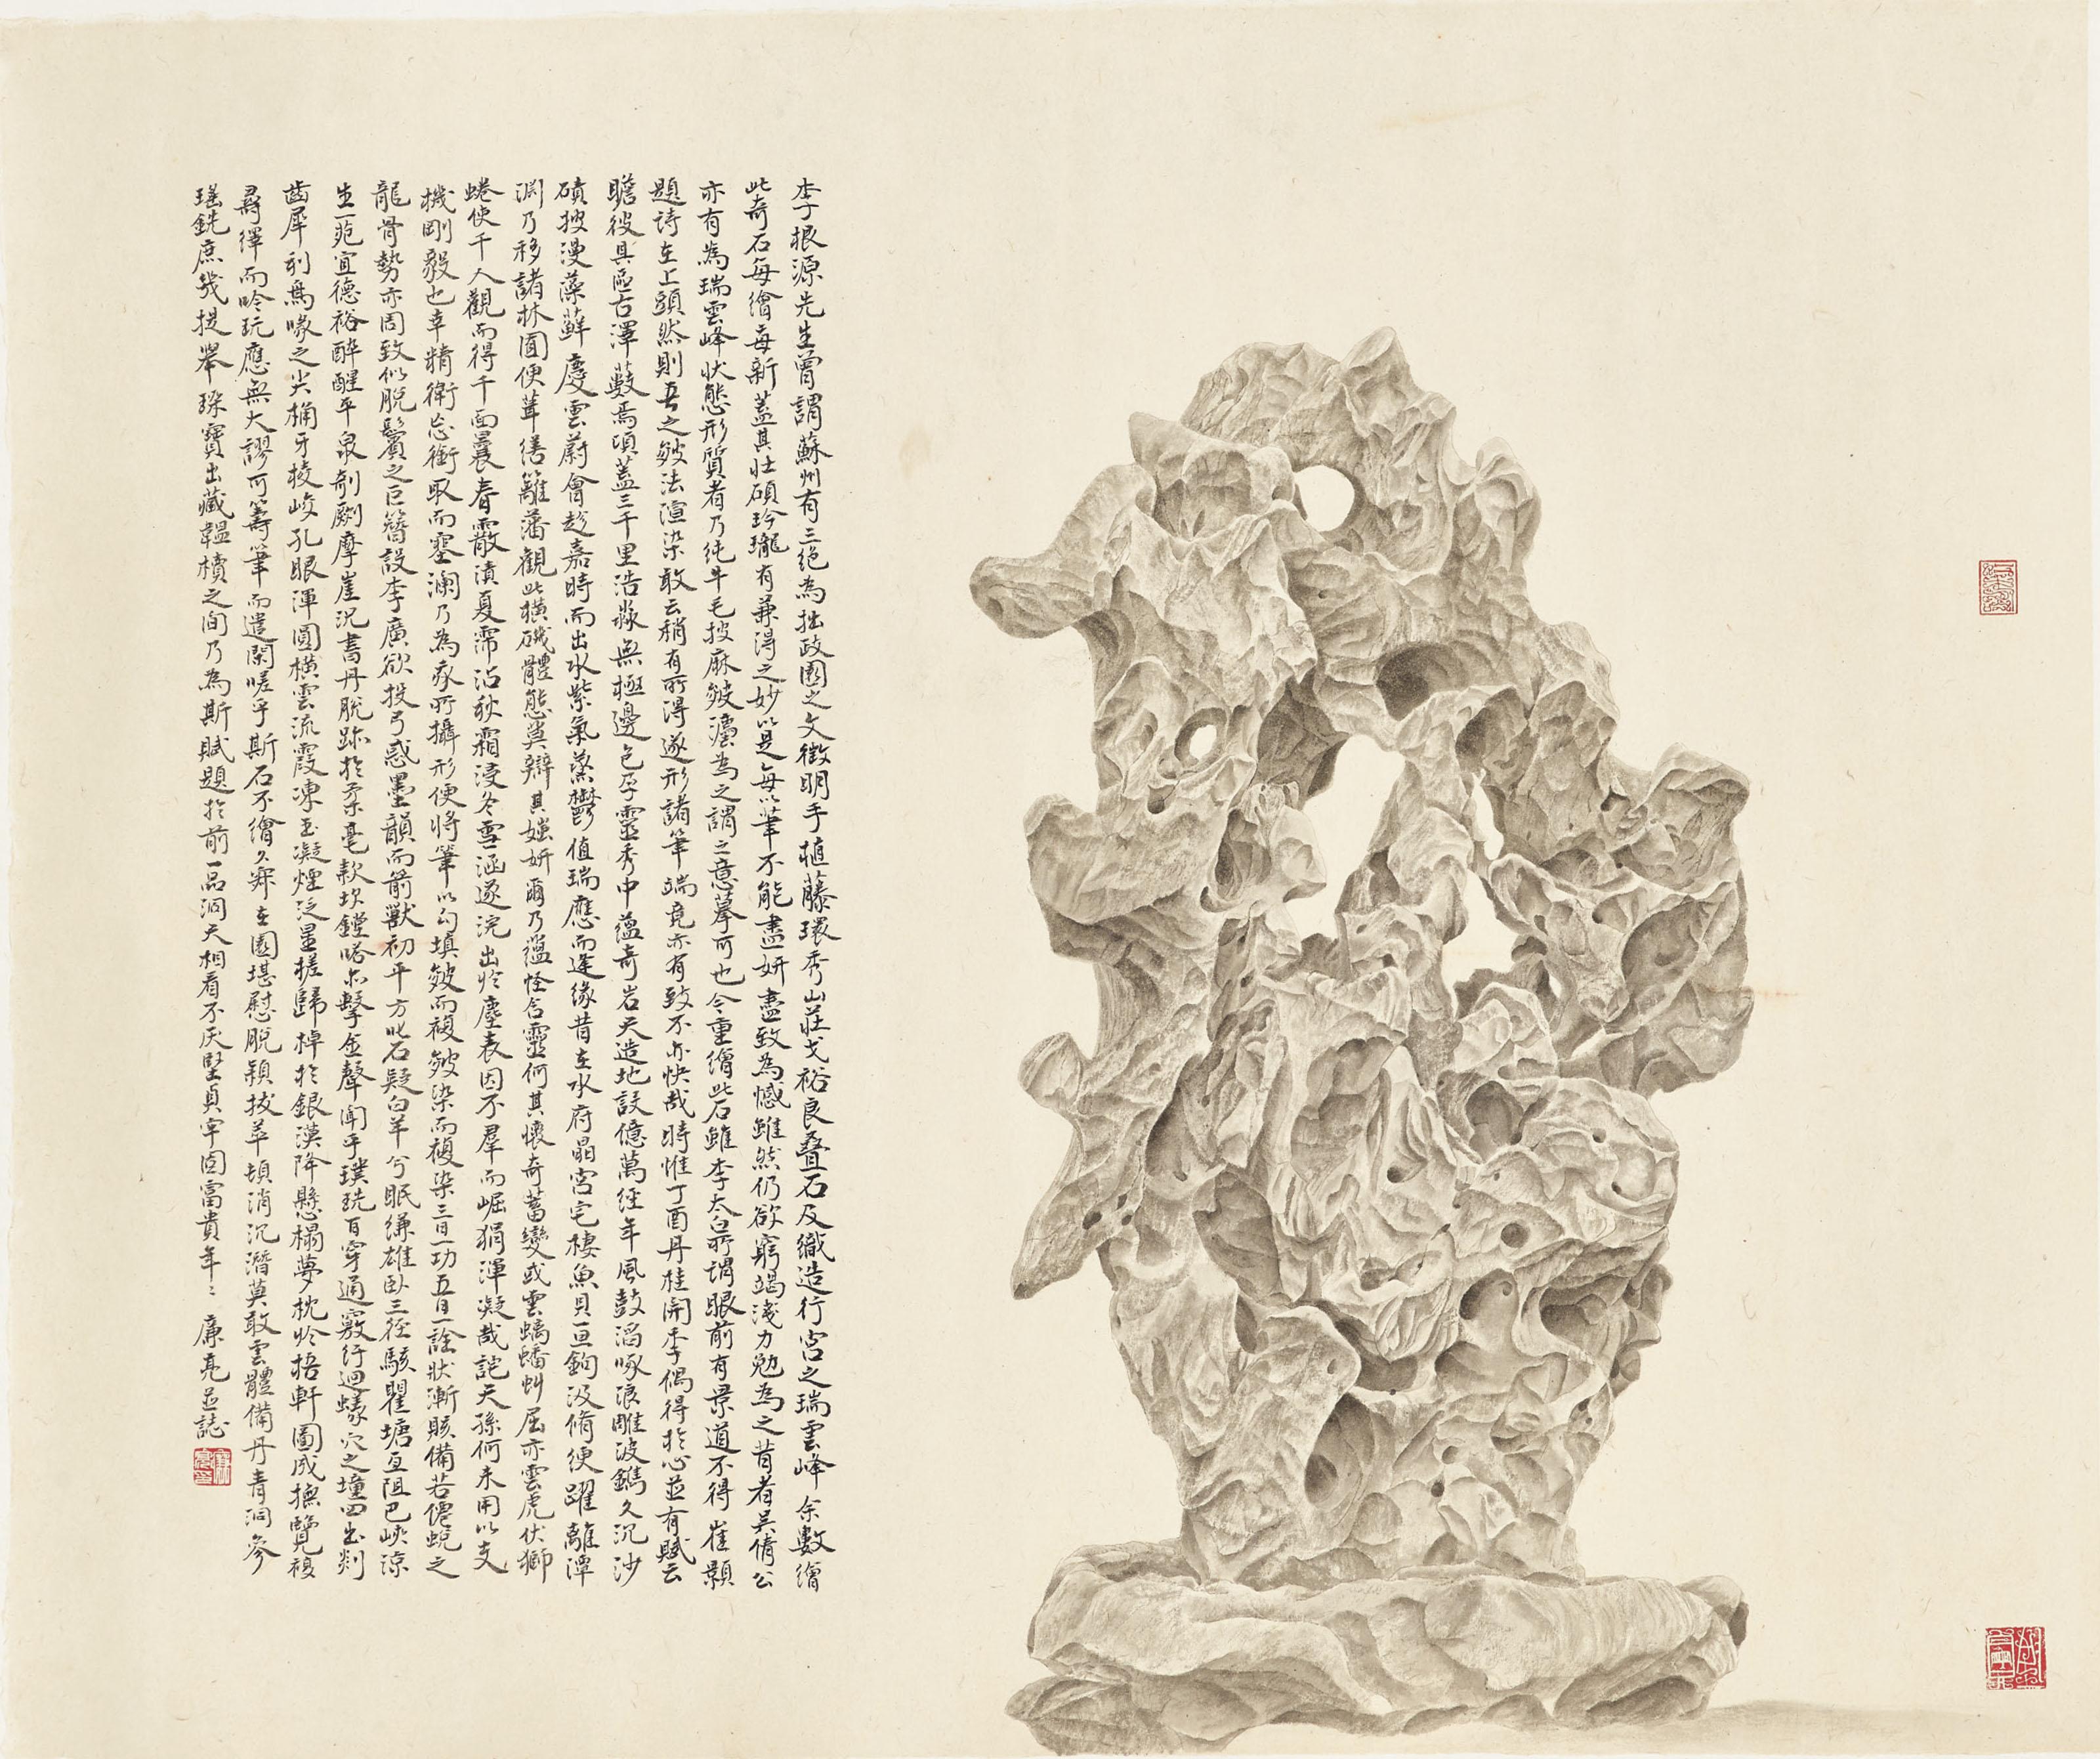 李根源先生曾謂蘇州有三絕為拙政園之文徵明手植藤環秀山莊戈裕良疊石及織造行宮之瑞雲峰余數繪
此奇石每繪每新蓋其壯碩玲瓏有兼得之妙以是每以筆不能盡妍盡致為憾雖然仍欲窮竭淺力勉為之昔者吳倩公
亦有為瑞雲峰狀態形質者乃純牛毛披麻皴灋為之謂之意摹可也今重繪此石雖李太白所謂眼前有景道不得崔顥
題詩在上頭然則吾之皴法渲染敢云稍有所得遂形諸筆端竟亦有致不亦快哉時惟丁酉丹桂開季偶得於心並有賦云
瞻彼具區古澤藪焉頃蓋三千里浩淼無極邊包孕靈秀中蘊奇岩天造地設億萬經年風鼓滔啄浪雕波鐫久沉沙
磧披漫藻蘚慶雲蔚會趁嘉時而出水紫氣藁鬱值瑞應而逢緣昔在水府晶宮宅棲魚貝一旦鉤汲脩綆躍離潭
淵乃移諸林囿便葺繕籬藩觀此橫礒體態莫辯其媸妍爾乃蘊怪含靈何其懷奇蓄變或雲螭蟠虯屈亦雲虎伏獅
蜷使千人觀而得千面晨春霰漬夏霈沾秋霜浸冬雪涵遂浣出於塵表因不羣而崛狷渾凝哉詫天孫何未用以支
機剛毅也幸精衛忘銜取而塞瀾乃為家所攝形便將筆以勾填皴而複皴染而複染三日一功五日一詮狀漸賅備若僊蛻之
龍骨勢亦周致似脫鬢之巨簪設李廣欲投弓惑墨韻而箭獸初平方叱石疑白羊兮眠縑雄臥三徑駭瞿塘互阻巴峽諒
生一苑宜德裕醉醒平泉剞劂摩崖況書丹脫跡於柔毫款坎鏜嗒尒擊金聲聞乎璞珗百穿通竅行迴蟻穴之壇四出剡
齒犀利為喙之尖桷牙棱峻孔眼渾圓橫雲流霞凍玉凝煙泛星槎歸棹於銀漢降懸榻夢枕於梧軒圖成撫覽複
尋繹而吟玩應無大謬可籌筆而遣閑嗟乎斯石不繪久寐在園堪慰脫穎拔萃頓消沉潛莫敢雲體備丹青洞參
瑤銑庶幾提舉琛寶出藏韞櫝之間乃為斯賦題於前一品洞天相看不厌堅貞牢固富貴年〻 廉亮並誌